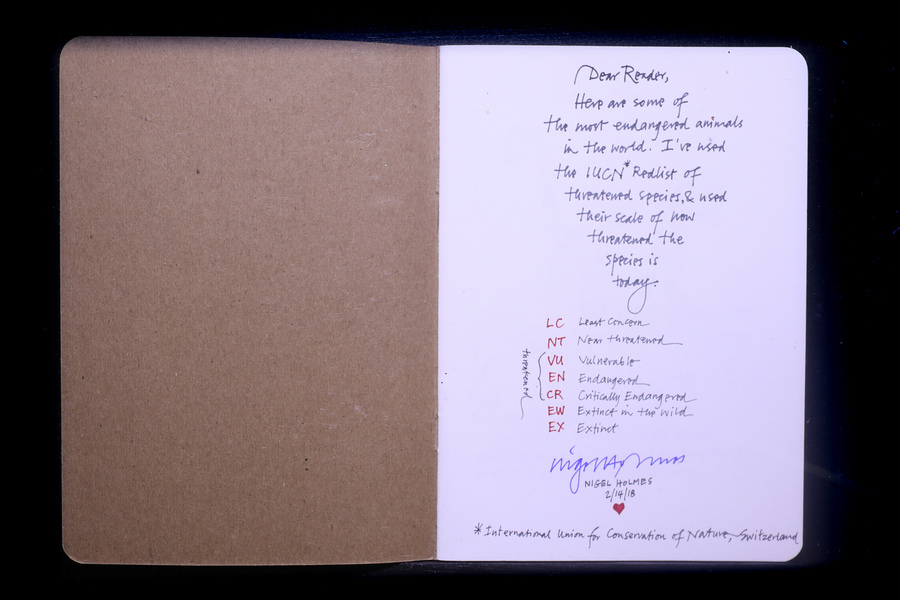 Dear Reader,
Here are some of
the most endangered animals
in the world. I've used
the IUCN* Redlist of
threatened species, & used
their scale of how
threatened the
species is
today.
LC Least Concern
NT Near threatened
threatened
VU Vulnerable
EN Endangered
CR Critically Endangered
EW Extinct in the wild
EX Extinct
nigel holmes
NIGEL HOLMES
2/14/18
*International Union for Conservation of Nature, Switzerland